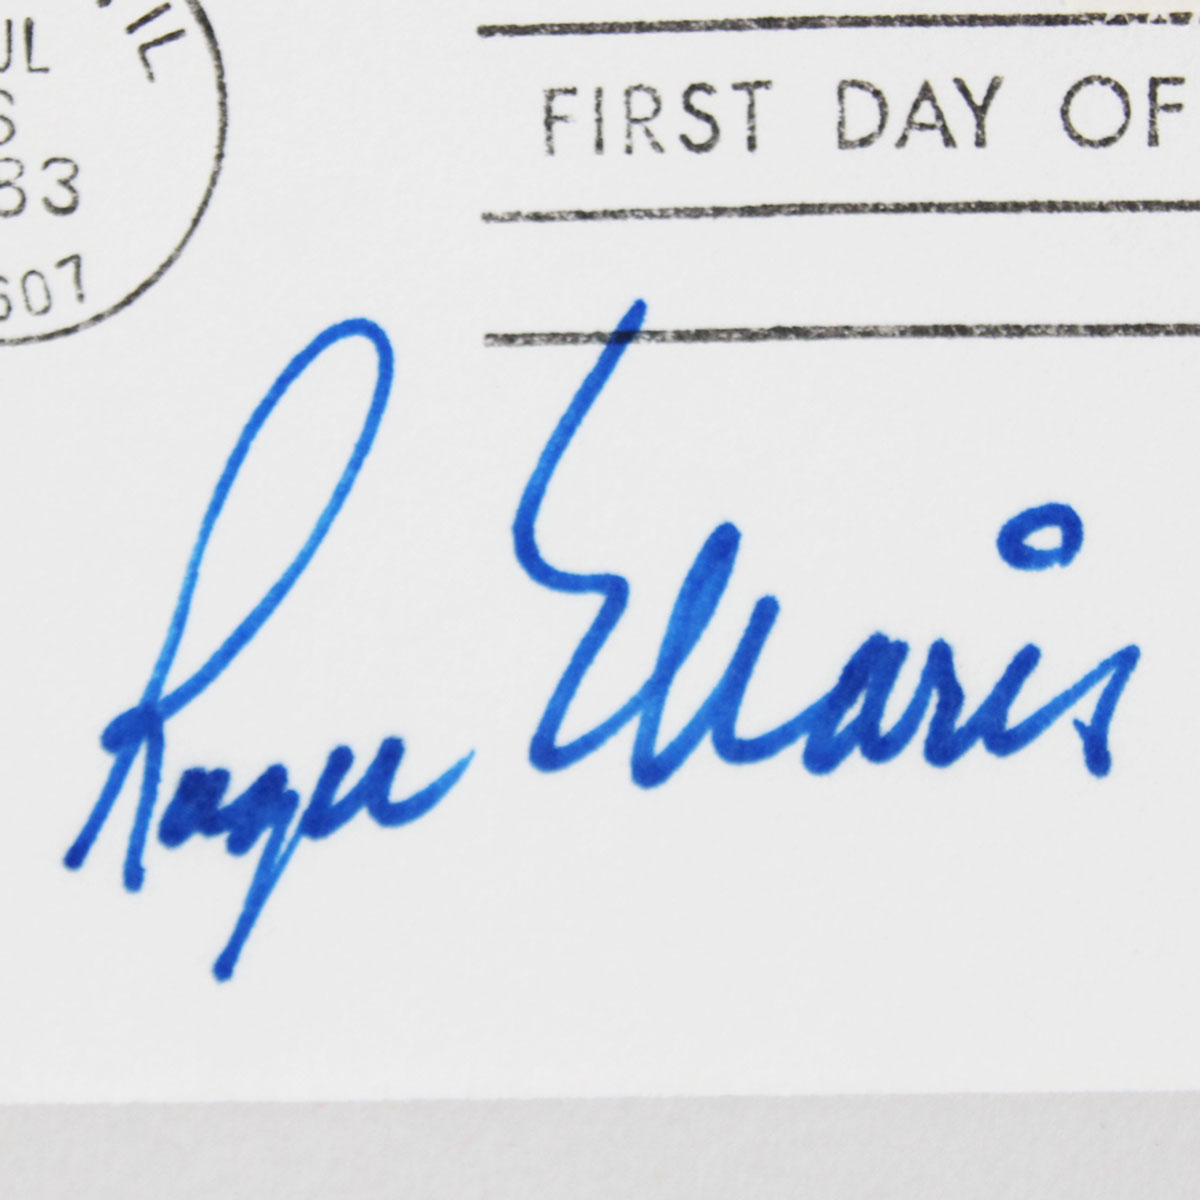 IL
JUL
6
83
607
FIRST DAY OF
Roger Maris